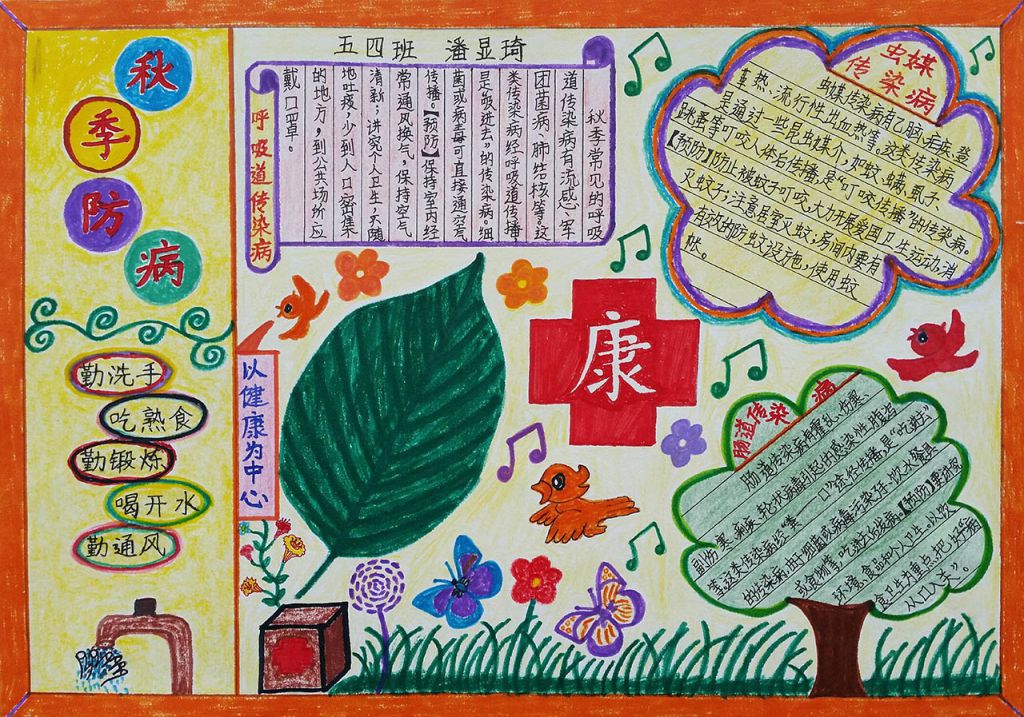 五四班 潘显琦
秋
季
防
病
勤洗手
吃熟食
勤锻炼
喝开水
勤通风
呼吸道传染病
秋季常见的呼吸
道传染病有流感、军
团菌病、肺结核等。这
类传染病经呼吸道传播
是“吸进去”的传染病。细
菌或病毒可直接通空气
传播。【预防】保持室内经
常通风换气,保持空气
清新;讲究个人卫生,不随
地吐痰,少到人口密集
的地方,到公共场所应
戴口罩。
虫媒
传染病
虫媒传染病有乙脑、疟疾、登
革热、流行性出血热等。这类传染病
是通过一些昆虫媒介,如蚊、螨、虱子、
跳蚤等叮咬人体后传播,是“叮咬传播”的传染病。
【预防】防止被蚊子叮咬,大力开展爱国卫生运动,消
灭蚊子;注意居室灭蚊;房间内要有
有效的防蚊设施,使用蚊
帐。
以健康为中心
康
肠道传染病
肠道传染病有霍乱、伤寒、
副伤寒、痢疾、轮状病毒引起的感染性腹泻
等,这类传染病经“粪——口”途径传播,是“吃进去”
的传染病,因细菌或病毒污染手、饮水、餐具
或食物等,吃进去找病。【预防】要讲究
环境、食品和个人卫生。以饮
食卫生为重点,把好“病
从口入关”。